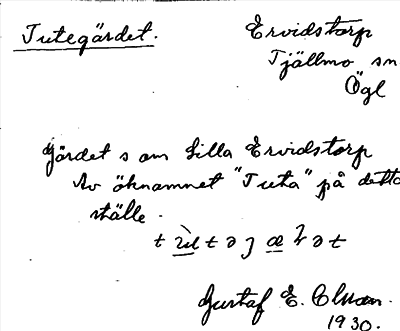 Tutegärdet.
Ervidstorp
Tjällmo sn
Ögl
Gärdet s om Lilla Ervidstorp
Av öknamnet "Tuta" på detta
ställe.
Gustaf E. Olman.
1930.